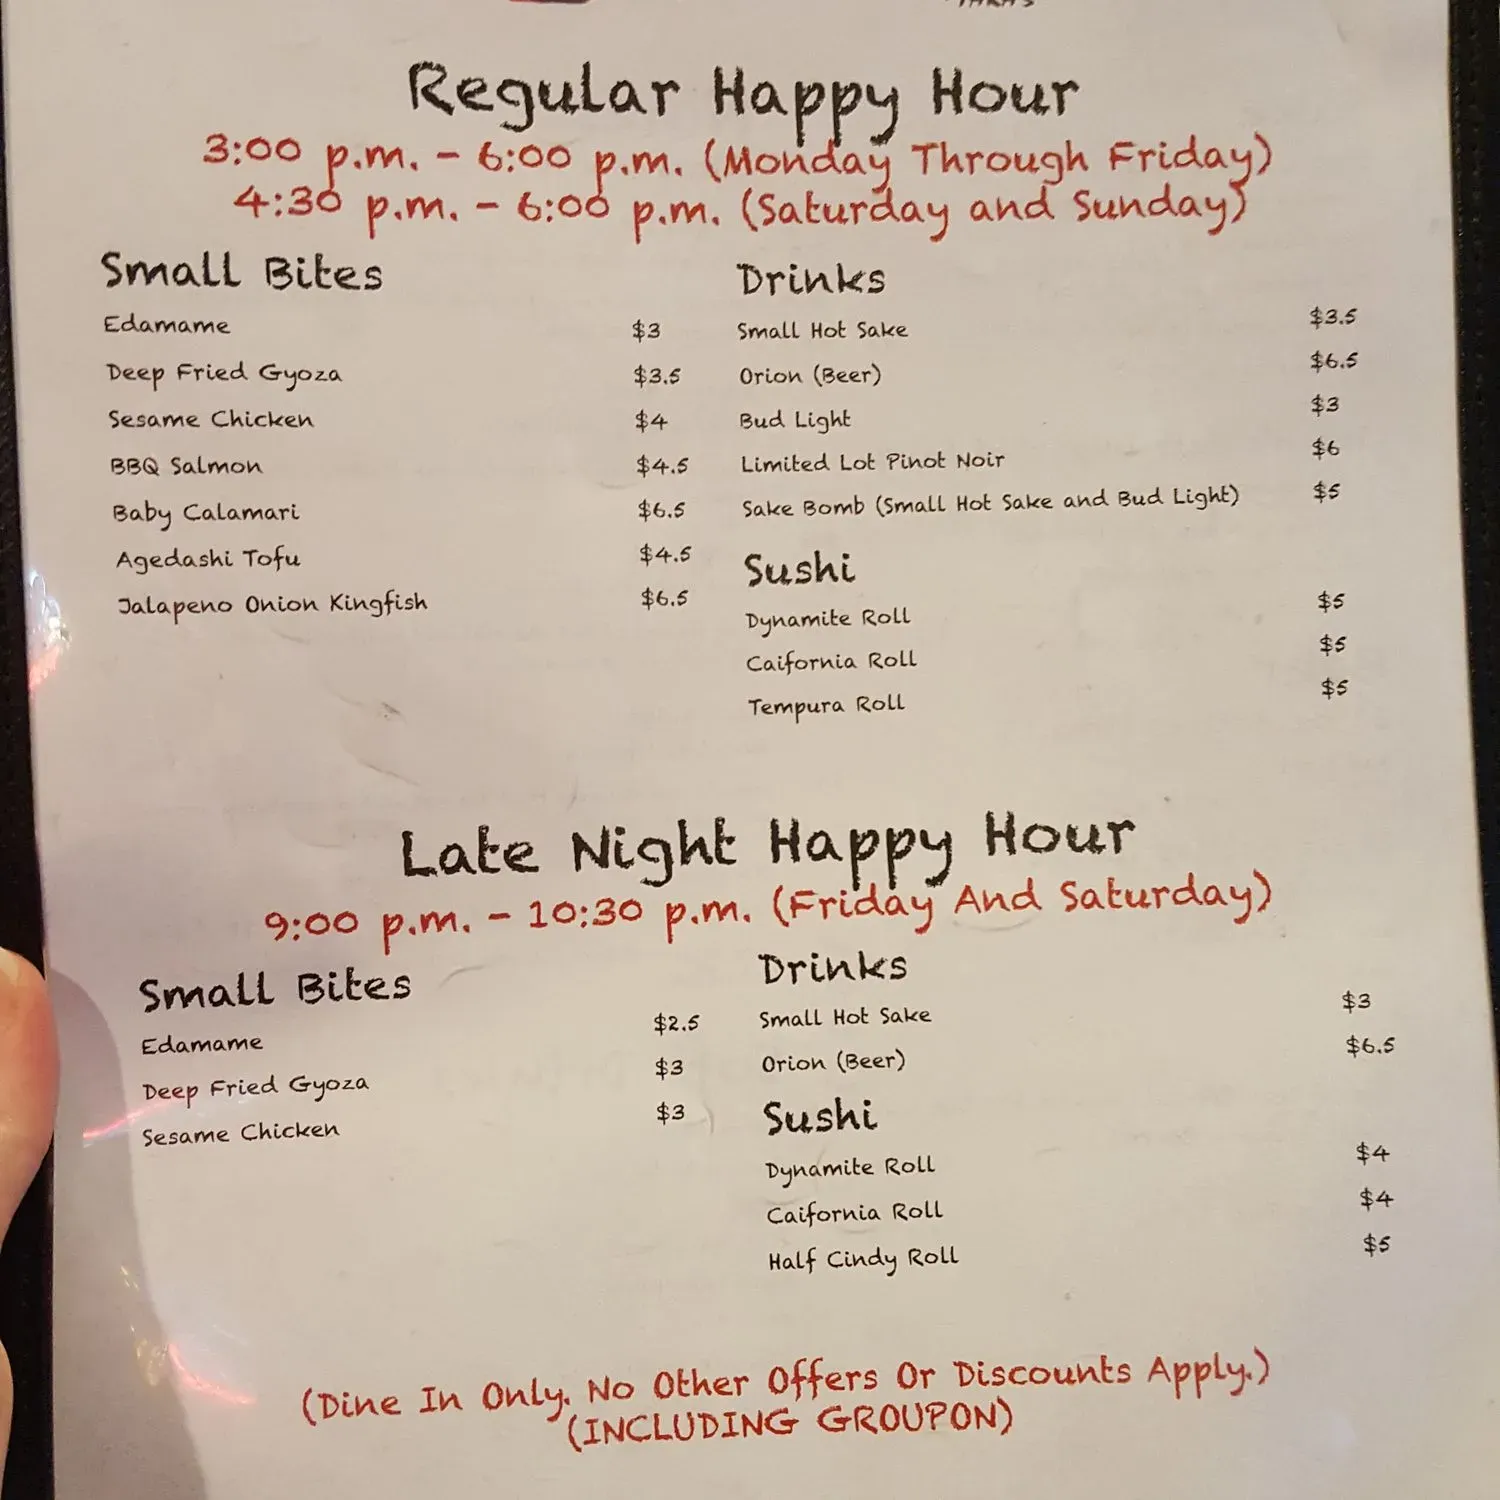 Regular Happy Hour
3:00 p.m. - 6:00 p.m. (Monday Through Friday)
4:30 p.m. - 6:00 p.m. (Saturday and Sunday)
Small Bites
Edamame $3
Deep Fried Gyoza $3.5
Sesame Chicken $4
BBQ Salmon $4.5
Baby Calamari $6.5
Agedashi Tofu $4.5
Jalapeno Onion Kingfish $6.5
Drinks
Small Hot Sake $3.5
Orion (Beer) $6.5
Bud Light $3
Limited Lot Pinot Noir $6
Sake Bomb (Small Hot Sake and Bud Light) $5
Sushi
Dynamite Roll $5
Caifornia Roll $5
Tempura Roll $5
Late Night Happy Hour
9:00 p.m. - 10:30 p.m. (Friday And Saturday)
Small Bites
Edamame $2.5
Deep Fried Gyoza $3
Sesame Chicken $3
Drinks
Small Hot Sake $3
Orion (Beer) $6.5
Sushi
Dynamite Roll $4
Caifornia Roll $4
Half Cindy Roll $5
(Dine In Only. No Other Offers Or Discounts Apply.)
(INCLUDING GROUPON)